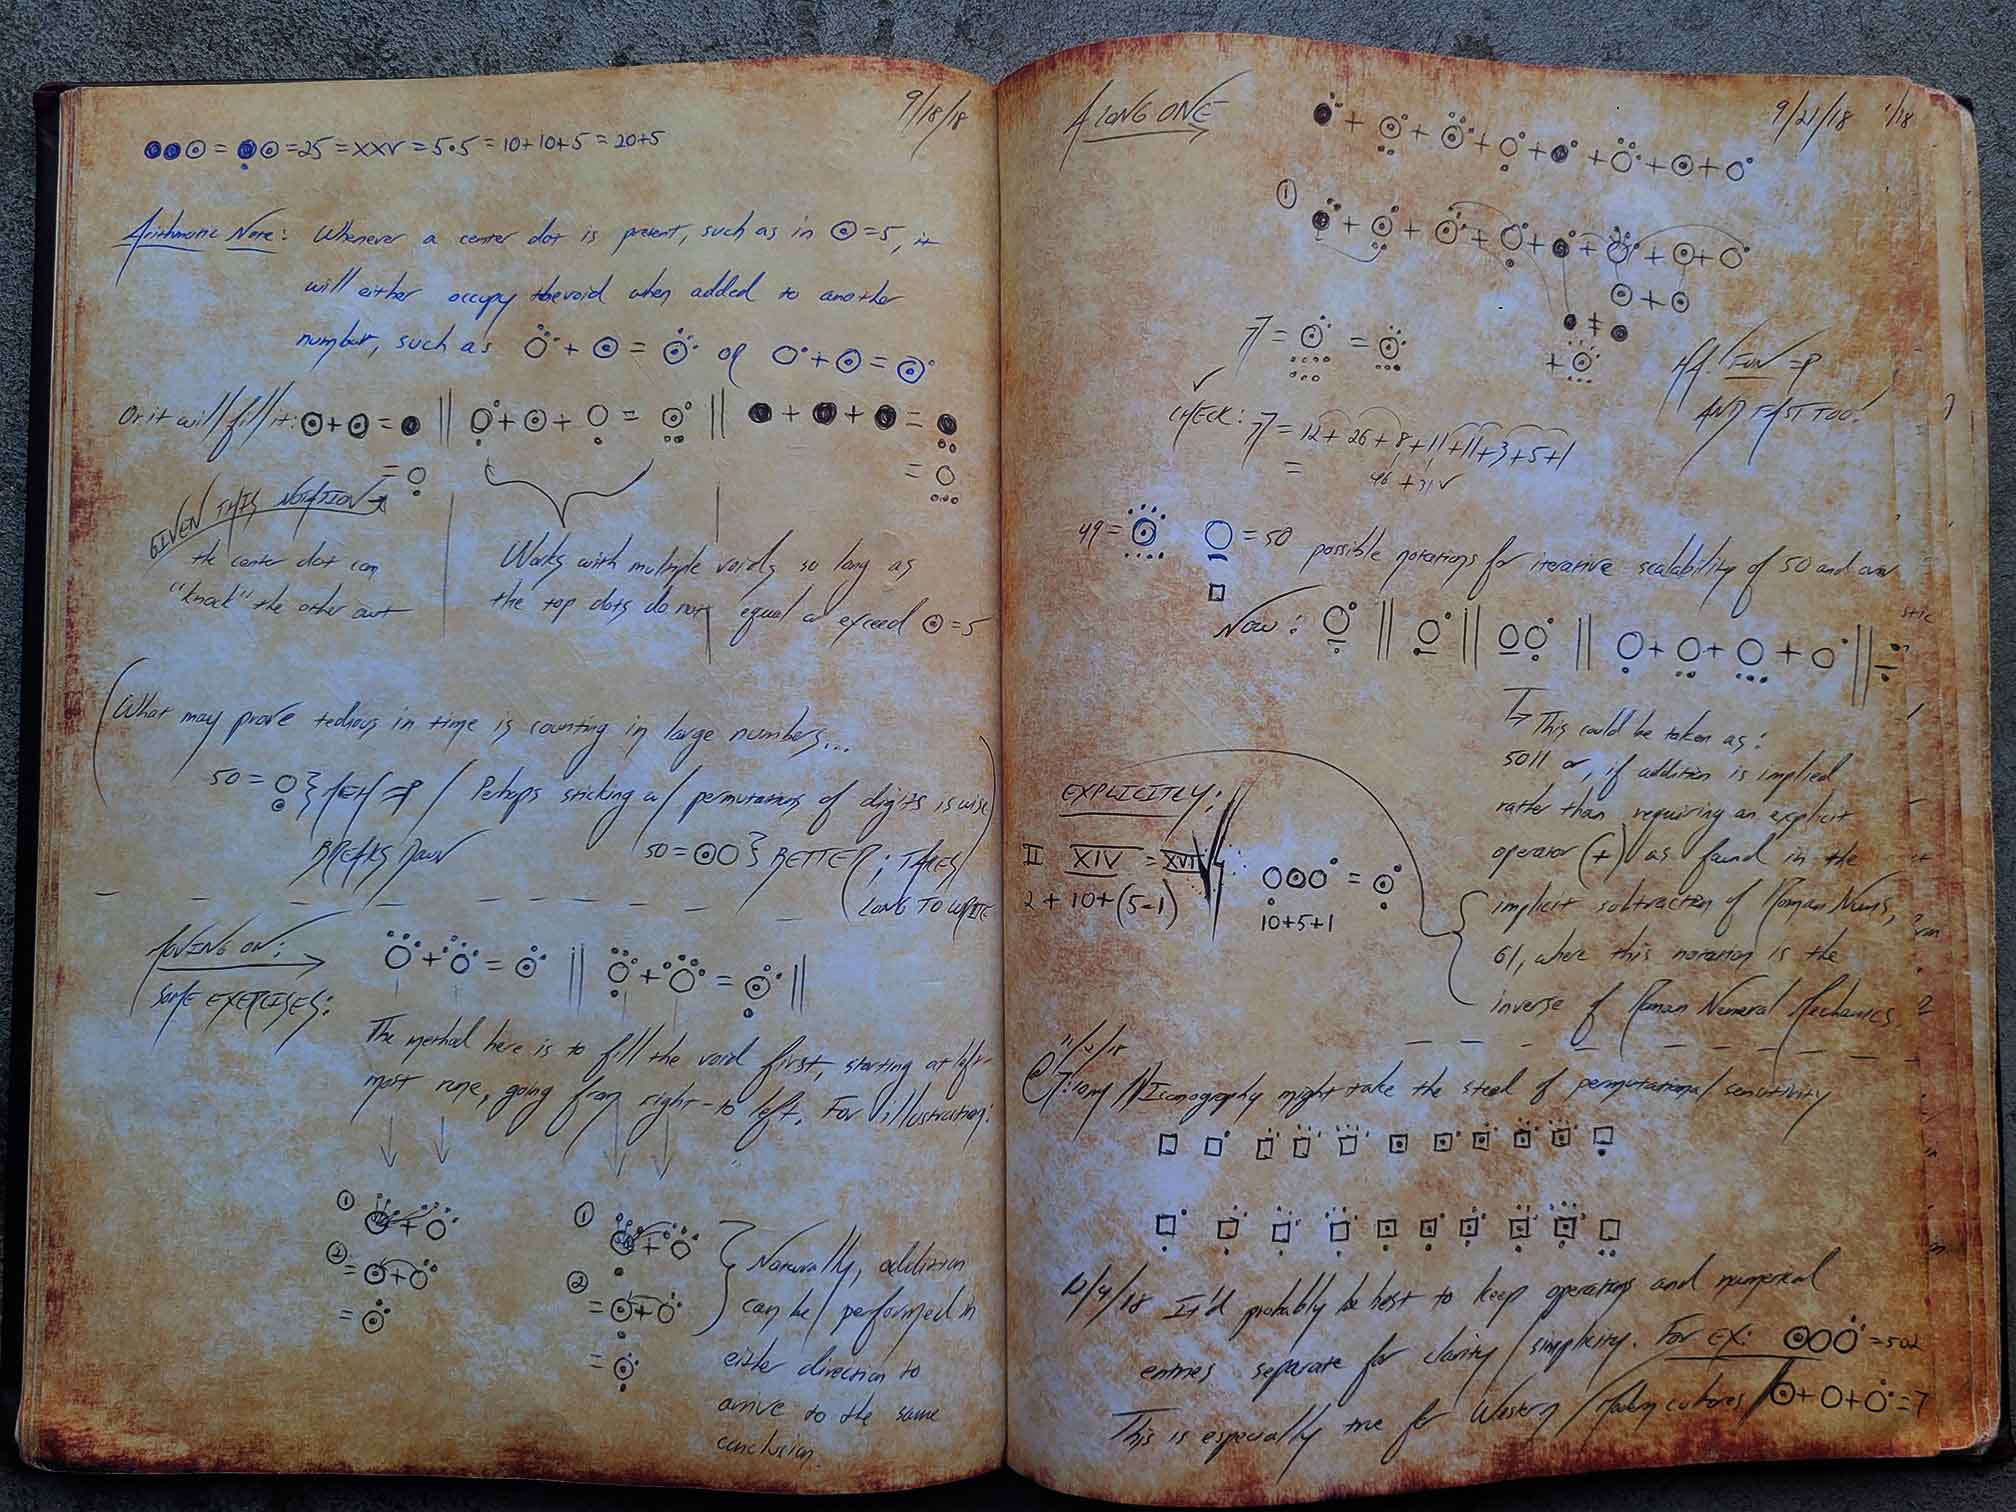 9/18/18
= 25 = XXV = 5·5 = 10+10+5 = 20+5
Arithmetic Note: Whenever a center dot is present, such as in ⊙=5, it
will either occupy the void when added to another
number, such as or
Or it will fill it:
GIVEN THIS NOTATION →
the center dot can
"knock" the other out
Works with multiple voids so long as
the top dots do not equal or exceed ⊙=5
(What may prove tedious in time is counting in large numbers...
50 = } / Perhaps sticking w/ permutations of digits is wise
BREAKS DOWN 50 = ⊙○} BETTER; TAKES
LONG TO WRITE
MOVING ON:
SOME EXERCISES:
The method here is to fill the void first, starting at left-
most rune, going from right-to left. For illustration:
① ①
② ②
Naturally, addition
can be performed in
either direction to
arrive to the same
conclusion.
A LONG ONE
9/21/18
①
77 =
HA! FUN =P
AND FAST TOO!
✓
CHECK: 77 = 12+26+8+11+11+3+5+1
=
46 + 31 ✓
49 = = 50 possible notations for iterative scalability of 50 and over
Now:
This could be taken as:
5011 or, if addition is implied
rather than requiring an explicit
operator (+) as found in the
implicit subtraction of Roman Nums,
61, where this notation is the
inverse of Roman Numeral Mechanics.
EXPLICITLY:
II XIV = XVI
2 + 10+(5-1)
10+5+1
Iconography might take the steed of permutational sensitivity
12/4/18 It'd probably be best to keep operations and numerical
entries separate for clarity/simplicity. For EX: = 502
This is especially true for Western cultures = 7